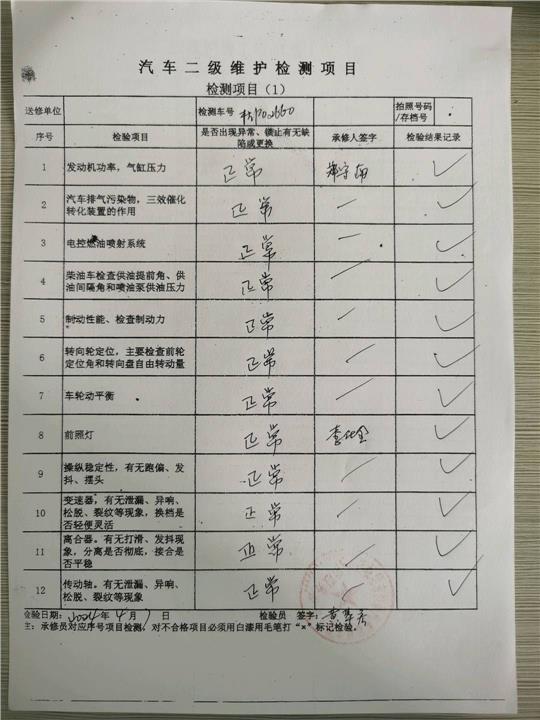 汽车二级维护检测项目
检测项目（1）
送修单位 检测车号 拍照号码/存档号
序号 检验项目 是否出现异常、锁止有无缺陷或更换 承修人签字 检验结果记录
1 发动机功率，气缸压力 正常 ✓
2 汽车排气污染物，三效催化转化装置的作用 正常 — ✓
3 电控燃油喷射系统 正常 — ✓
4 柴油车检查供油提前角、供油间隔角和喷油泵供油压力 正常 — ✓
5 制动性能、检查制动力 正常 — ✓
6 转向轮定位，主要检查前轮定位角和转向盘自由转动量 正常 — ✓
7 车轮动平衡 正常 — ✓
8 前照灯 正常 ✓
9 操纵稳定性，有无跑偏、发抖、摆头 正常 — ✓
10 变速器，有无泄漏、异响、松脱、裂纹等现象，换档是否轻便灵活 正常 — ✓
11 离合器。有无打滑、发抖现象，分离是否彻底，接合是否平稳 正常 — ✓
12 传动轴。有无泄漏、异响、松脱、裂纹等现象 正常 — ✓
检验日期：2024年4月7日 检验员 签字：
主：承修员对应序号项目检测，对不合格项目必须用白漆用毛笔打“×”标记检验。